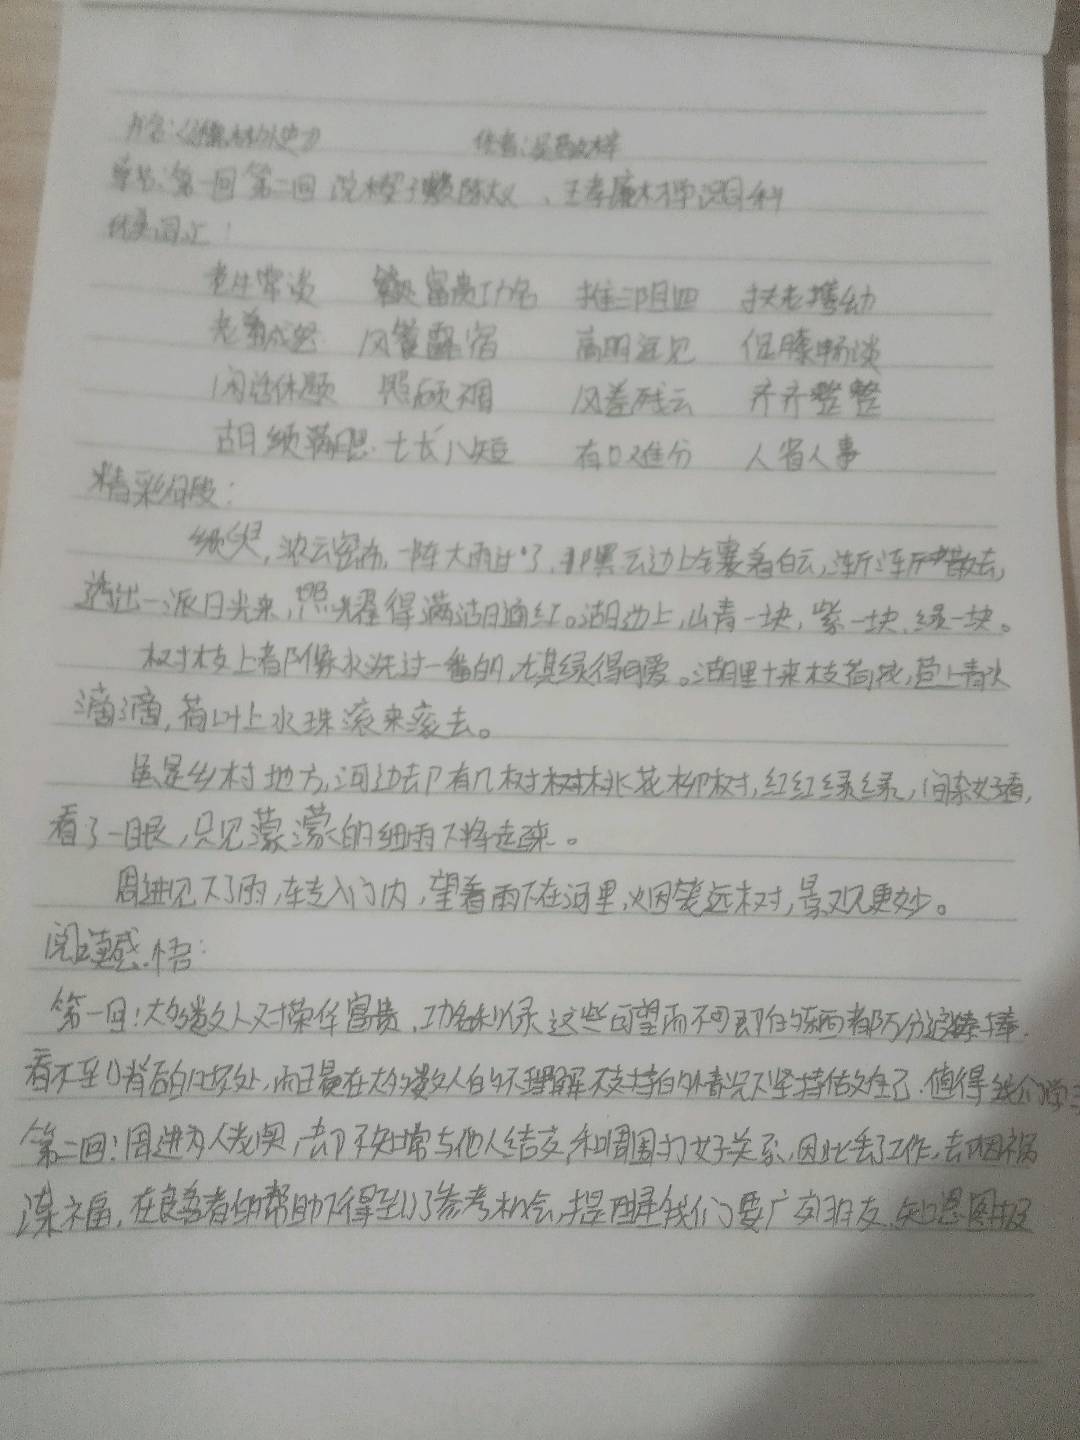 书名:《儒林外史》 作者:吴敬梓
章节:第一回 第二回 说楔子敷陈大义、王孝廉村学识同科
优美词汇:
老生常谈 富贵功名 推三阻四 扶老携幼
老羞成怒 高明远见 促膝畅谈
闲话休题 风卷残云 齐齐整整
胡须满腮 七长八短 有口难分 人省人事
精彩句段:
须臾,浓云密布,一阵大雨过了。那黑云边上镶着白云,渐渐散去,
透出一派日光来,照耀得满湖通红。湖边上,山青一块,紫一块,绿一块。
树枝上都像水洗过一番的,尤其绿得可爱。湖里十来枝荷花,苞上清水
滴滴,荷叶上水珠滚来滚去。
虽是乡村地方,河边却有几树桃花柳树,红红绿绿,间杂好看,
看了一眼,只见濛濛的细雨下将起来。
周进见下了雨,转入门内,望着雨下在河里,烟笼远树,景观更妙。
阅读感悟:
第一回:大多数人对荣华富贵、功名利禄这些可望而不可即的东西都万分追捧,
看不到背后的坏处,而王冕在大多数人的不理解不支持的情况下坚持做自己,值得我们学习
第二回:周进为人老实,却不知常与他人结交,和周围打好关系,因此丢了工作,却因祸
得福,在良善者的帮助下得到了参考机会,提醒我们要广交朋友、知恩图报